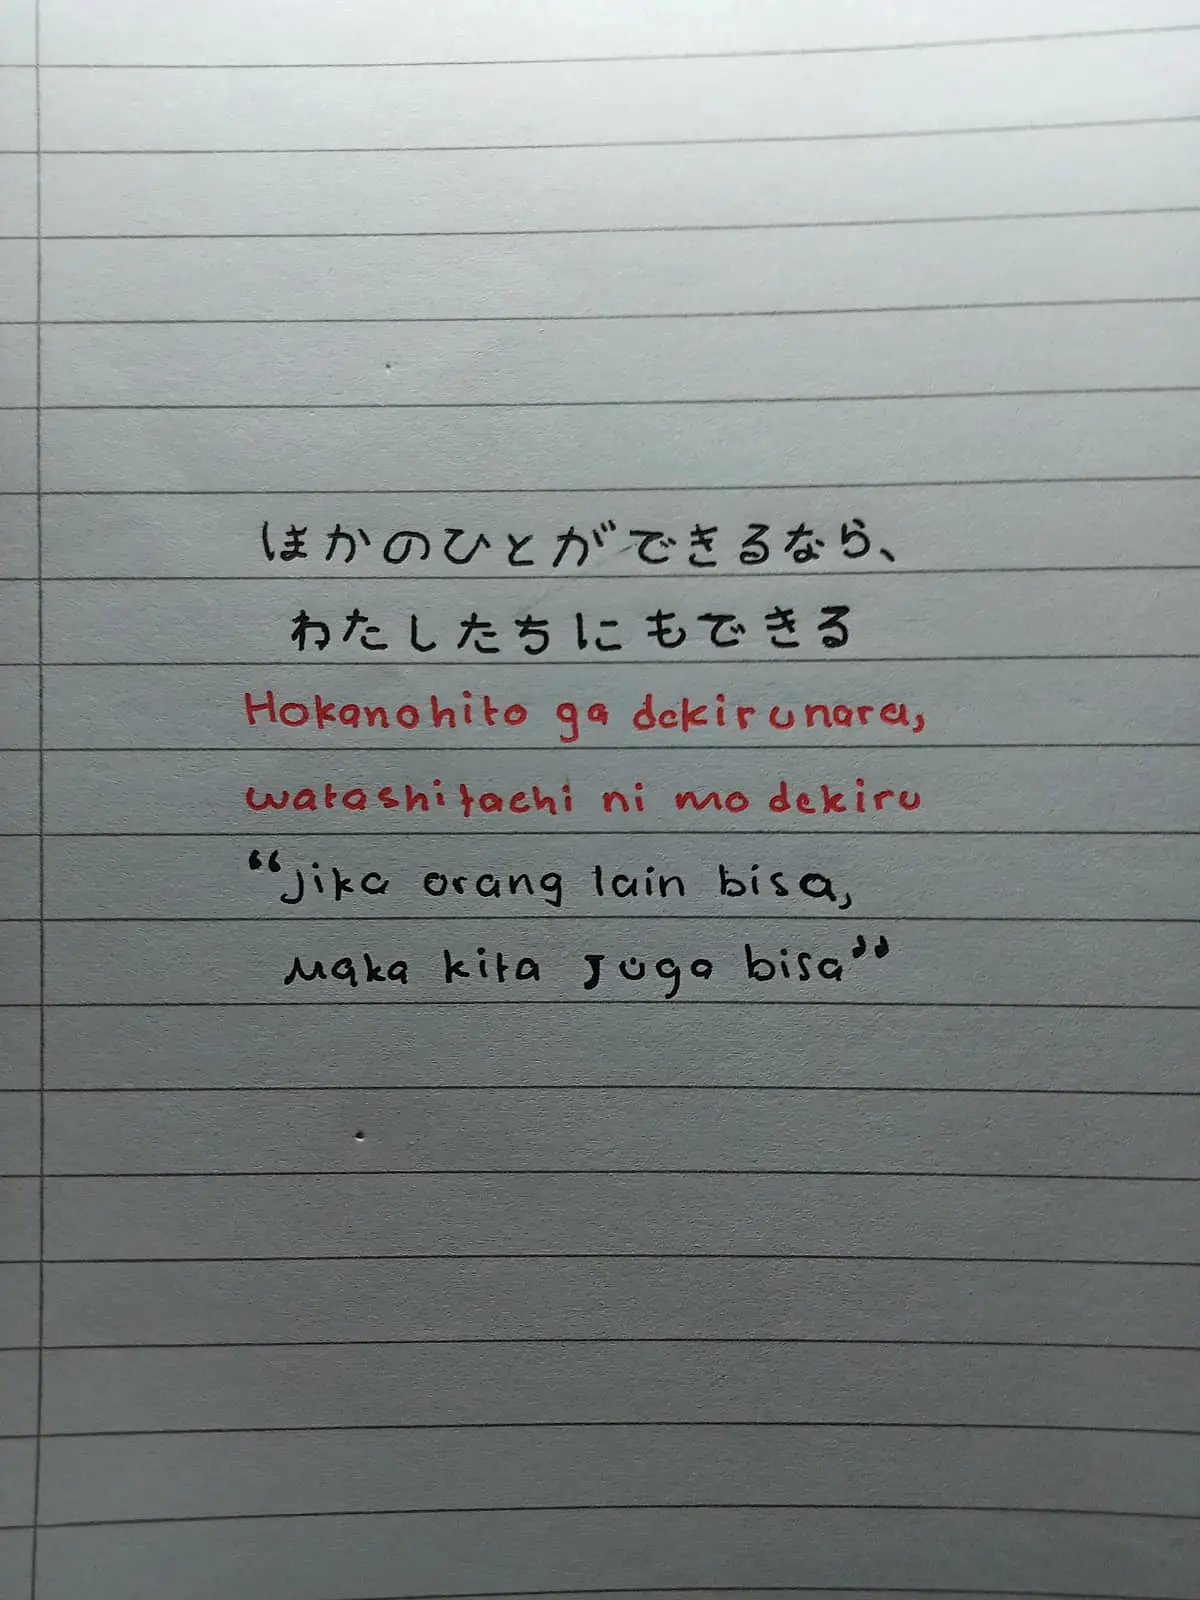 ほかのひとができるなら、
わたしたちにもできる
Hokanohito ga dekirunara,
watashitachi ni mo dekiru
“Jika orang lain bisa,
Maka kita Juga bisa”